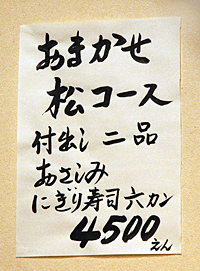 おまかせ
松コース
付出し 二品
おさしみ
にぎり寿司六カン
4500
えん